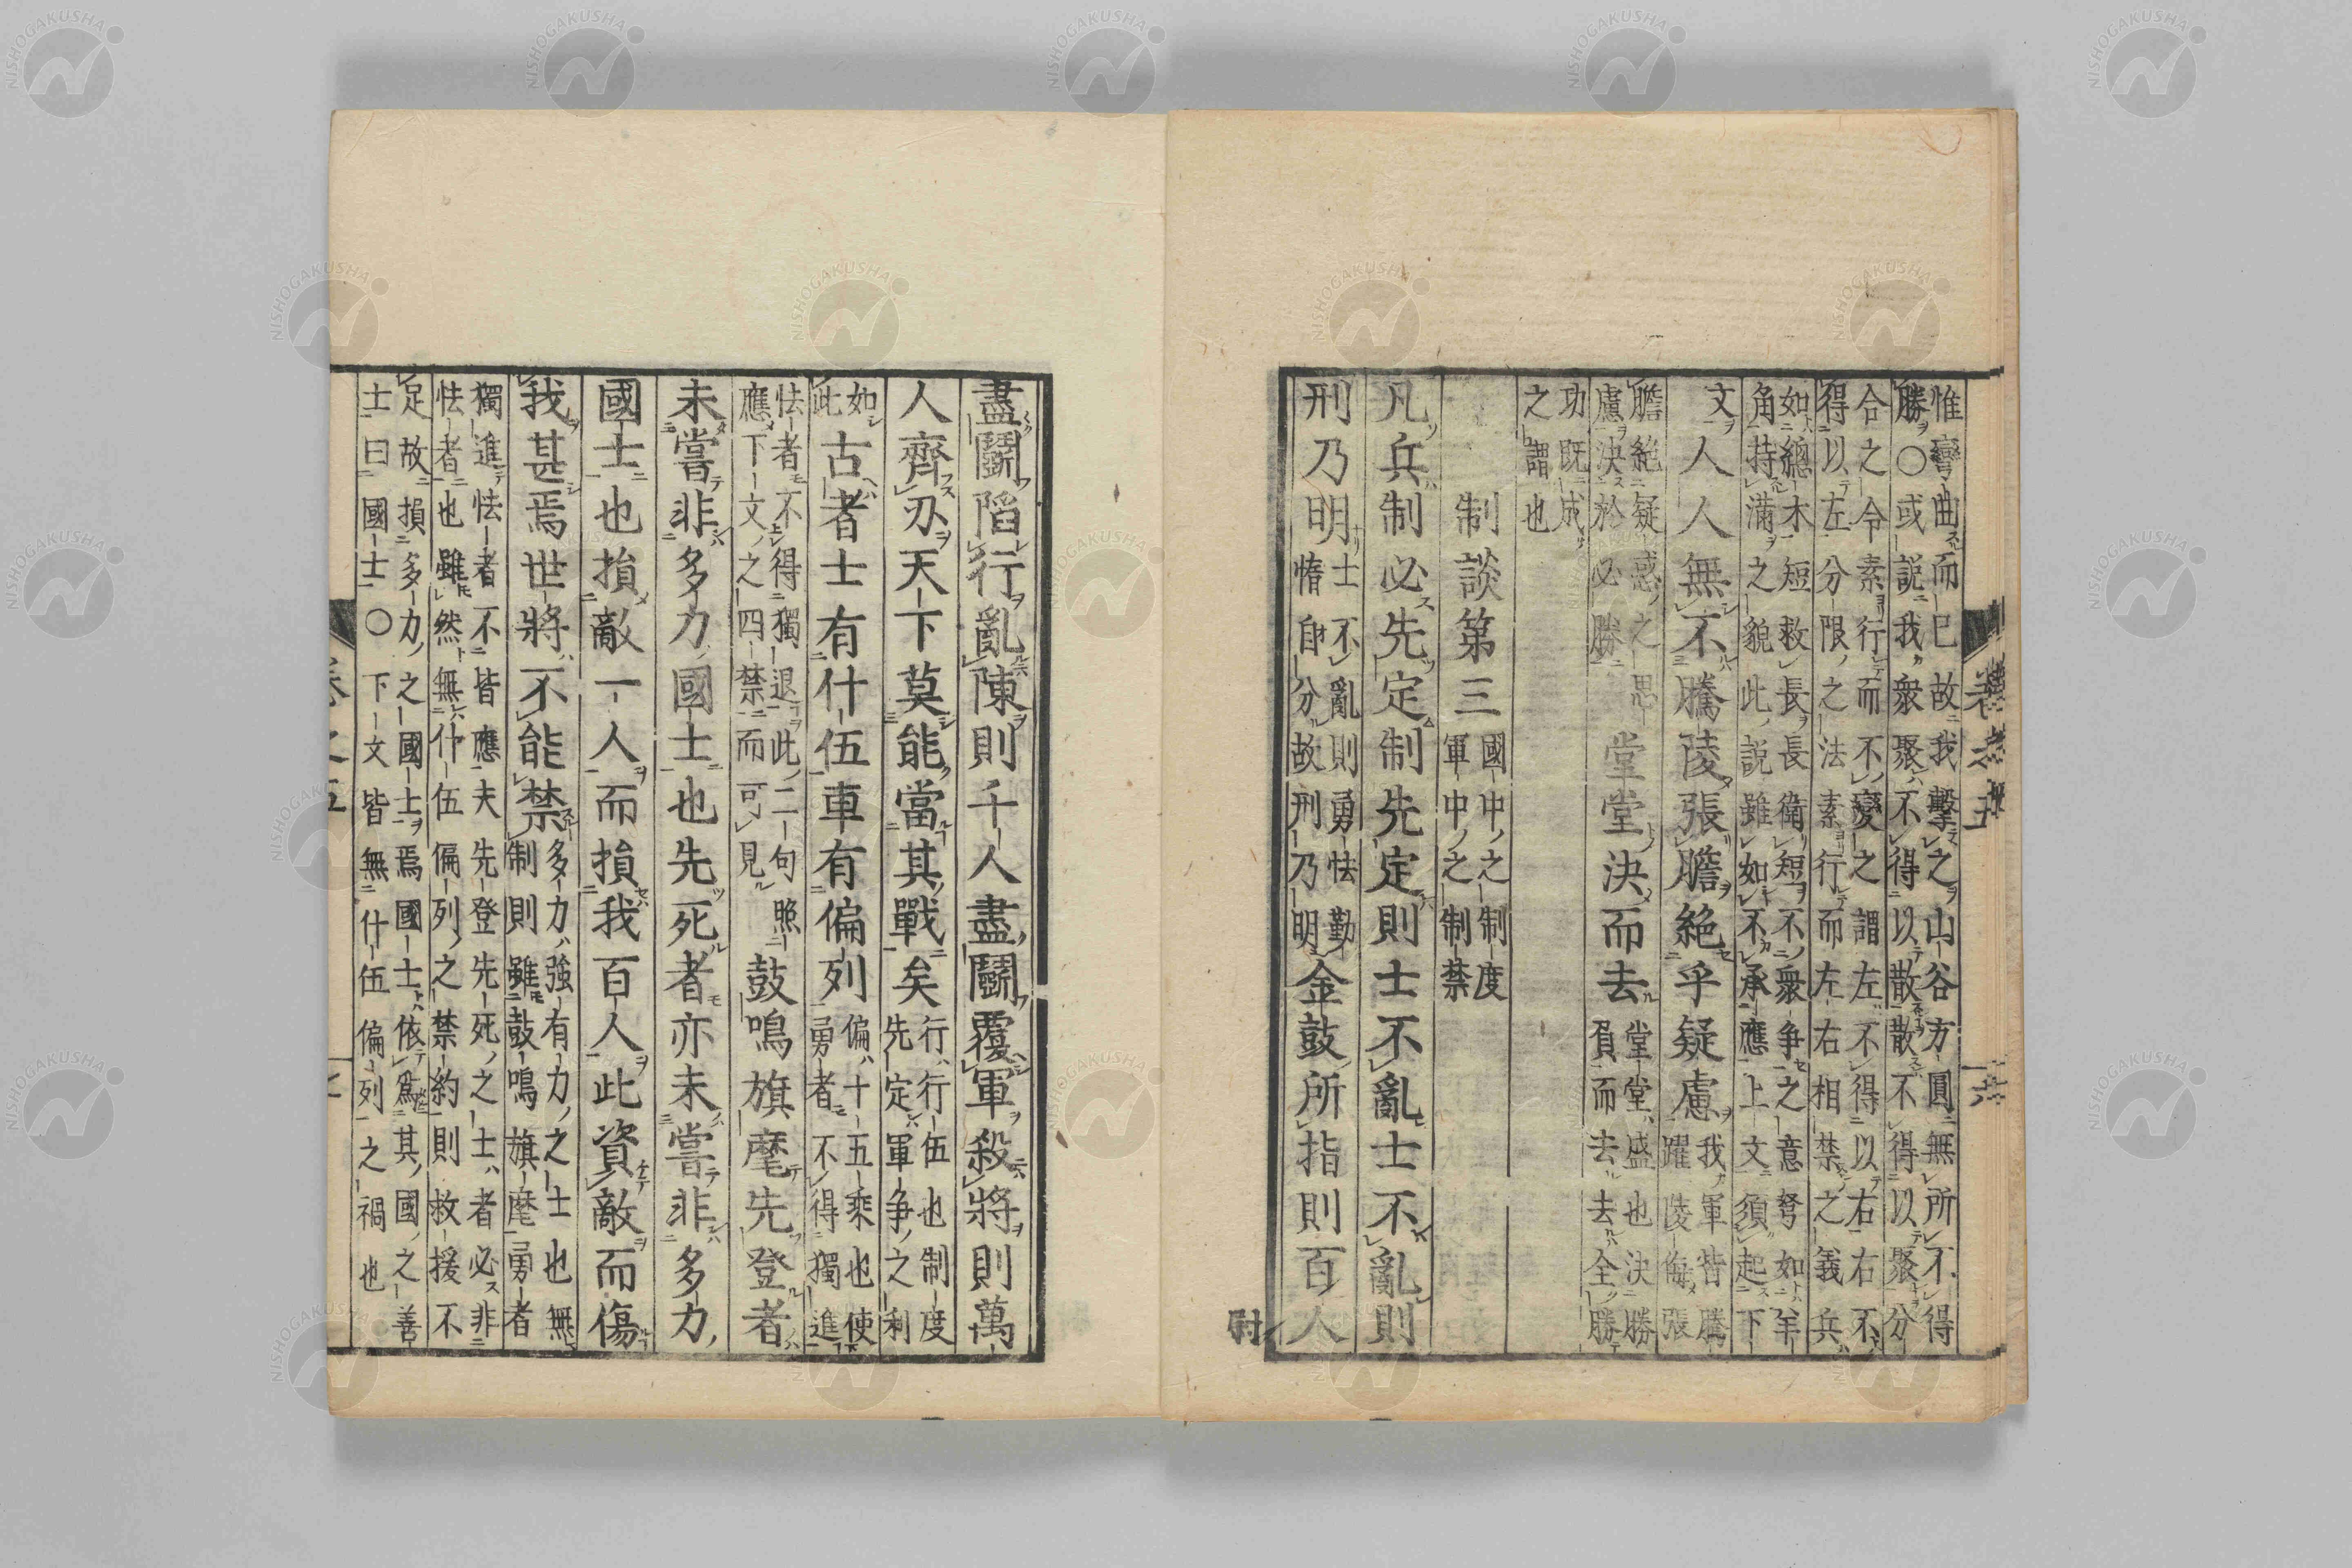 惟彎曲而已故我擊之山谷方圓無所不得
勝○或説我衆聚不得以散散不得以聚分
合之令素行而不變之謂左不得以右右不
得以左分限之法素行而左右相禁之義兵
如總木短救長長衛短不衆争之意弩如羊
角持滿之貌此説雖如不承應上文須起下
文人人無不騰陵張膽絶乎疑慮我軍皆騰
躍陵侮張
膽絶疑惑之思
慮決於必勝
堂堂決而去堂堂盛也決勝
負而去去全勝
功既成
之謂也
制談第三國中之制度
軍中之制禁
凡兵制必先定制先定則士不亂士不亂則
刑乃明士不亂則勇怯勤
惰自分故刑乃明
金鼓所指則百人
尉
盡鬭陷行亂陳則千人盡鬭覆軍殺將則萬
人齊刃天下莫能當其戰矣行行伍也制度
先定軍争之利
如
此
古者士有什伍車有偏列偏十五乘也使
勇者不得獨進
怯者不得獨退此二句照
應下文之四禁而可見
鼓鳴旗麾先登者
未嘗非多力國士也先死者亦未嘗非多力
國士也損敵一人而損我百人此資敵而傷
我甚焉世將不能禁多力強有力之士也無
制則雖鼓鳴旗麾勇者
獨進怯者不皆應夫先登先死之士者必非
怯者也雖然無什伍偏列之禁約則救援不
足故損多力之國士焉國士依爲其國之善
士曰國士○下文皆無什伍偏列之禍也
卷之五
六
NISHOGAKUSHA